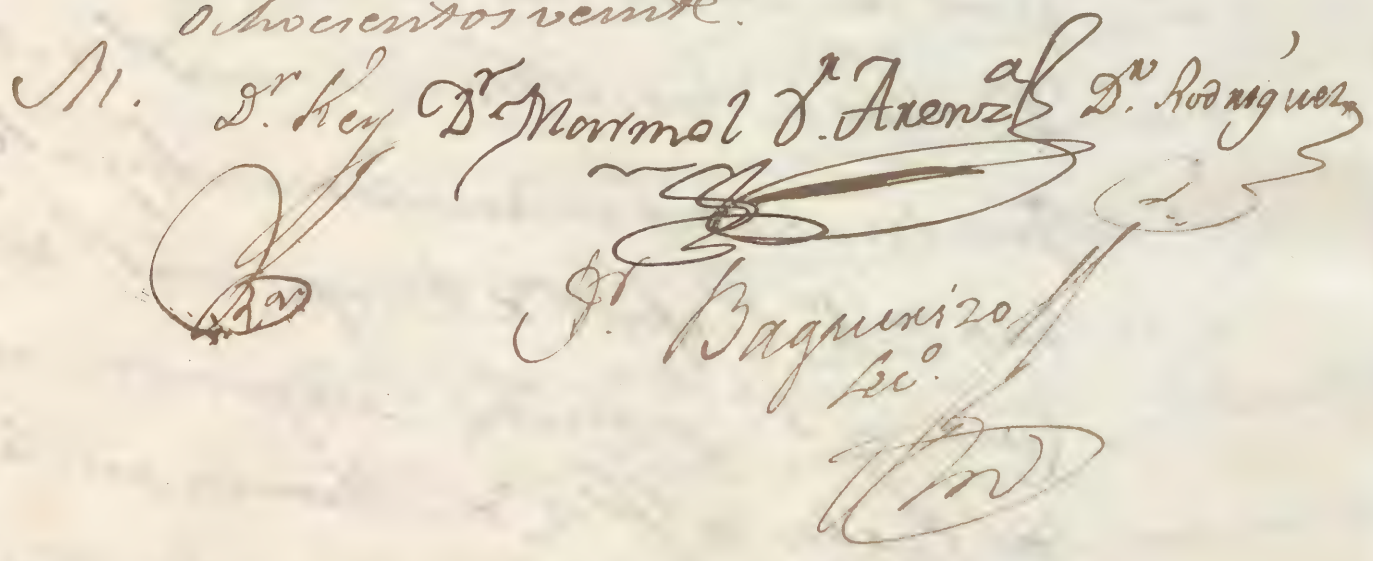 ochocientos veinte.
M. D.r Rey D.r Marmol D.n Arenzal D.n Rodriguez
D.r Baquerizo
Sec.o